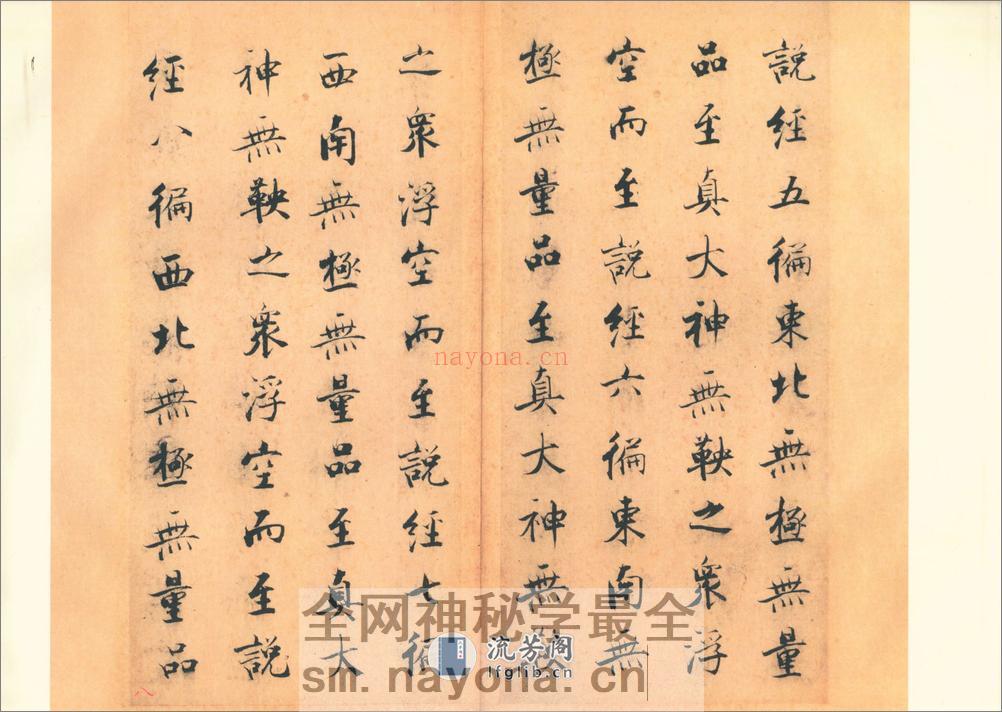 說經五徧東北無極無量
品至真大神無鞅之衆浮
空而至說經六徧東南無
極無量品至真大神無鞅
之衆浮空而至說經七徧
西南無極無量品至真大
神無鞅之衆浮空而至說
經八徧西北無極無量品
八
nayona.cn
全网神秘学最全
流芳阁
lfglib.cn
sm.nayona.cn